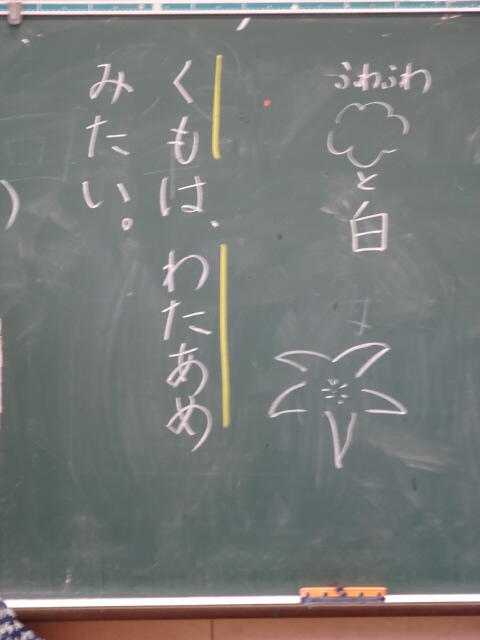 ふわふわ
と白
くもは、わたあめ
みたい。
）